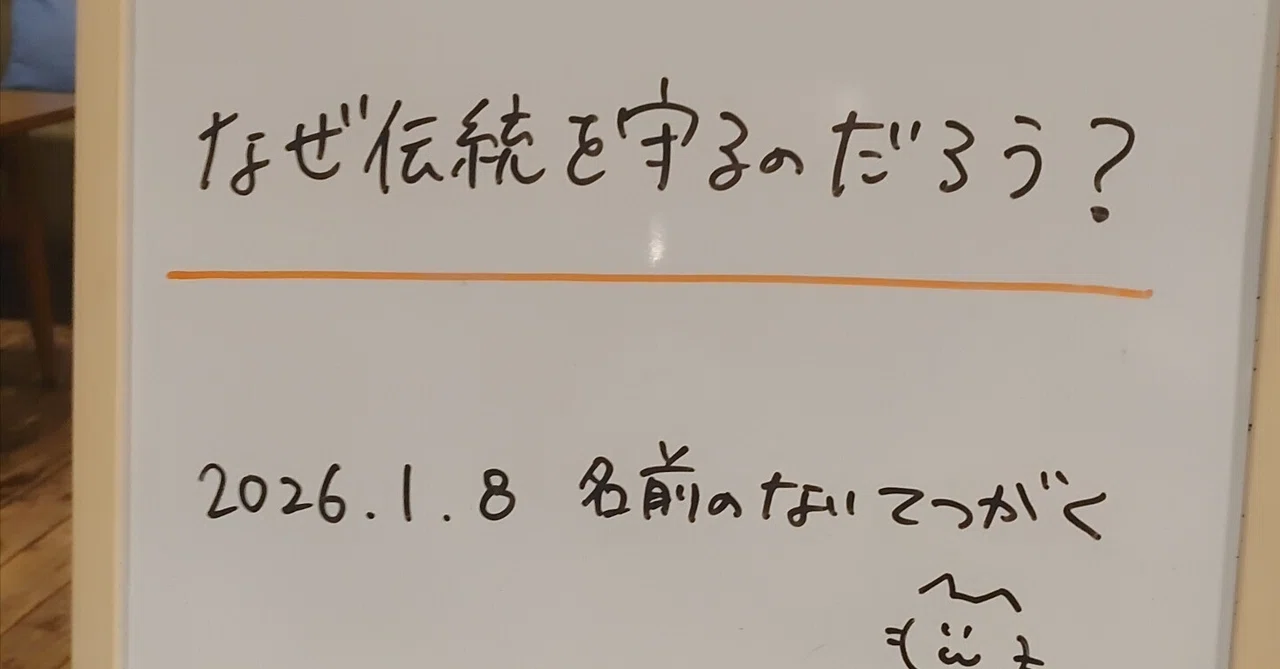 なぜ伝統を守るのだろう?
2026.1.8 名前のないてつがく